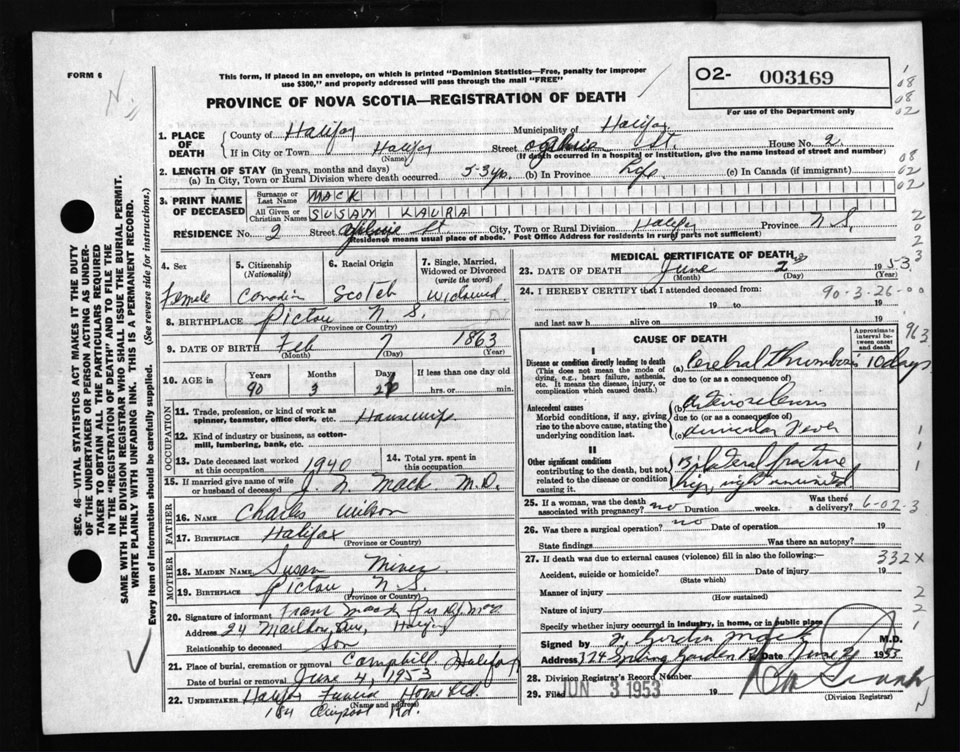 FORM 6
This form, if placed in an envelope, on which is printed "Dominion Statistics—Free, penalty for improper
use $300," and properly addressed will pass through the mail "FREE"
02- 003169
For use of the Department only
PROVINCE OF NOVA SCOTIA—REGISTRATION OF DEATH
1. PLACE OF DEATH
County of Halifax Municipality of Halifax
If in City or Town Halifax (Name) Street St. House No. 2
(If death occurred in a hospital or institution, give the name instead of street and number)
2. LENGTH OF STAY (in years, months and days)
(a) In City, Town or Rural Division where death occurred 53 yr. (b) In Province Life (c) In Canada (if immigrant)
3. PRINT NAME OF DECEASED
Surname or Last Name MACK
All Given or Christian Names SUSAN LAURA
RESIDENCE No. 2 Street St. City, Town or Rural Division Halifax Province N S.
(Residence means usual place of abode. Post Office Address for residents in rural parts not sufficient)
4. Sex
Female
5. Citizenship (Nationality)
Canadin
6. Racial Origin
Scotch
7. Single, Married, Widowed or Divorced (write the word)
Widowed
8. BIRTHPLACE Pictou N S.
(Province or Country)
9. DATE OF BIRTH Feb 7 1863
(Month) (Day) (Year)
10. AGE in Years Months Days If less than one day old
90 3 26 hrs. or min.
OCCUPATION
11. Trade, profession, or kind of work as spinner, teamster, office clerk, etc. Housewife
12. Kind of industry or business, as cotton-mill, lumbering, bank, etc.
13. Date deceased last worked at this occupation 1940
14. Total yrs. spent in this occupation
15. If married give name of wife or husband of deceased J. N. Mack M.D.
FATHER
16. NAME Charles Wilson
17. BIRTHPLACE Halifax
(Province or Country)
MOTHER
18. MAIDEN NAME Susan
19. BIRTHPLACE Pictou, N S.
(Province or Country)
20. Signature of informant Frank Mack
Address 24 Ave, Halifax
Relationship to deceased Son
21. Place of burial, cremation or removal Halifax
Date of burial or removal June 4, 1953
22. UNDERTAKER Halifax Funeral Home Ltd.
(Name and address)
184 Rd.
MEDICAL CERTIFICATE OF DEATH
23. DATE OF DEATH June 2nd 1953
(Month) (Day) (Year)
24. I HEREBY CERTIFY that I attended deceased from 90-3-26-00
19 to 19
and last saw h alive on 19
CAUSE OF DEATH
Approximate interval between onset and death
963
I
Disease or condition directly leading to death
(This does not mean the mode of dying, e.g., heart failure, asthenia, etc. It means the disease, injury, or complication which caused death.)
(a) Cerebral thrombosis 10 days
due to (or as a consequence of)
Antecedent causes
Morbid conditions, if any, giving rise to the above cause, stating the underlying condition last.
(b)
due to (or as a consequence of)
(c)
II
Other significant conditions contributing to the death, but not related to the disease or condition causing it.
Bilateral fracture
hip, right ununited
25. If a woman, was the death associated with pregnancy? no Duration weeks. Was there a delivery? 6-02-3
26. Was there a surgical operation? no Date of operation 19
State findings Was there an autopsy?
27. If death was due to external causes (violence) fill in also the following:— 332 X
Accident, suicide or homicide? Date of injury 19
(State which)
Manner of injury
(How sustained)
Nature of injury
Specify whether injury occurred in industry, in home, or in public place
Signed by Gordon Mack M.D.
Address 374 Spring Garden Rd Date June 1953
28. Division Registrar's Record Number
29. Filed JUN 3 1953
(Division Registrar)
SEC. 46—VITAL STATISTICS ACT MAKES IT THE DUTY
OF THE UNDERTAKER OR PERSON ACTING AS UNDER-
TAKER TO OBTAIN ALL THE PARTICULARS REQUIRED
IN THE "REGISTRATION OF DEATH" AND TO FILE THE
SAME WITH THE DIVISION REGISTRAR WHO SHALL ISSUE THE BURIAL PERMIT.
WRITE PLAINLY WITH UNFADING INK. THIS IS A PERMANENT RECORD.
Every item of information should be carefully supplied. (See reverse side for instructions.)